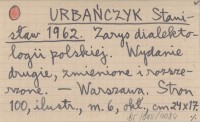 URBAŃCZYK Stani-
sław 1962. Zarys dialekto-
logii polskiej. Wydanie
drugie, zmienione i rozsze-
rzone. — Warszawa. Stron
100, ilustr., m. 6, okł., cm 24x17.